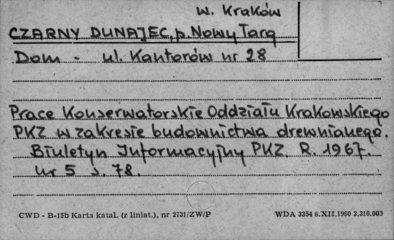 w. Kraków
CZARNY DUNAJEC, p. Nowy Targ
Dom - ul. Kantorów nr 28
Prace Konserwatorskie Oddziału Krakowskiego
PKZ w zakresie budownictwa drewnianego.
Biuletyn Informacyjny PKZ. R. 1967.
nr 5 s. 78.
CWD - B-15b Karta katal. (z liniat.), nr 2731/ZW/P WDA 3354 6.XII.1960 3.310.000